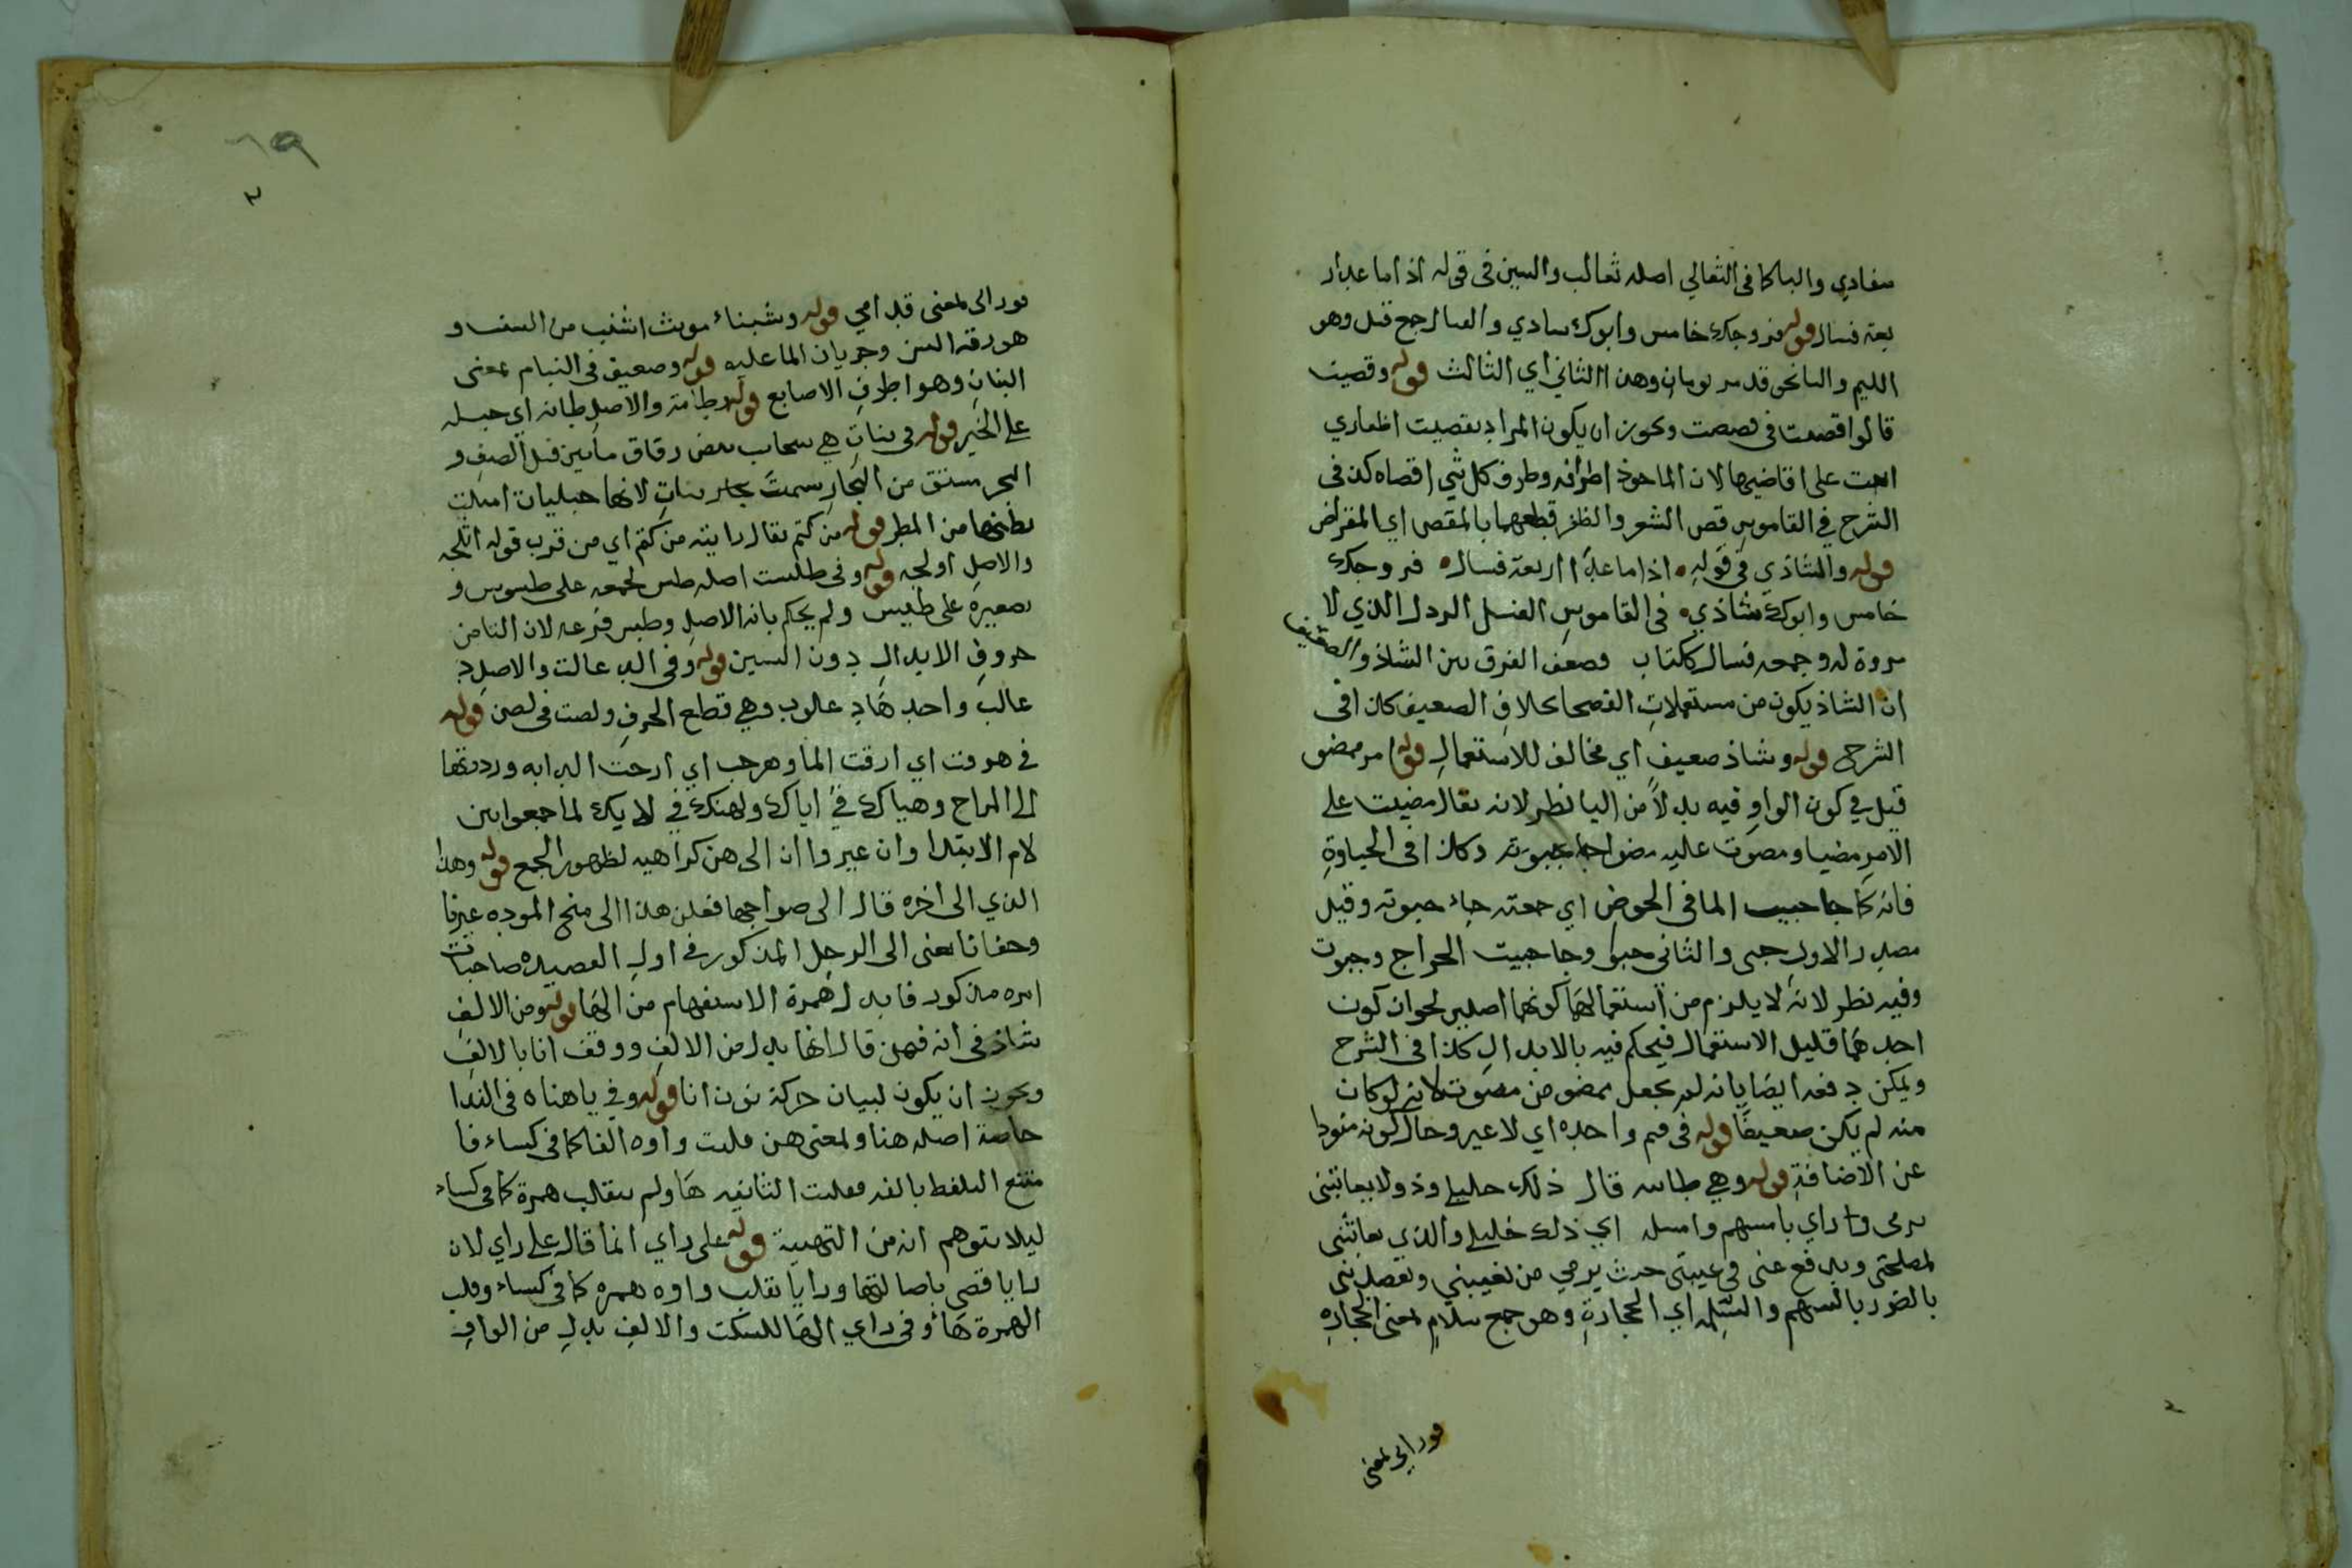 سفادي والبا كما في الثعالي اصله ثعالب والسين في قوله اذا ما عد ار
بعة فسال قوله فزوجك خامس وابوك سادي والفسال جمع فسل وهو
اللئيم والسا نحو قد مر يومان وهذا الثاني اي الثالث قوله وقصيت
قالوا قصصت في قصصت ويجوز ان يكون المراد بقصيت اظفاري
اتيت على اقاصيها لان الماخوذ اطرافه وطرف كل شي اقصاه كذا في
الشرح في القاموس قص الشعر والظفر قطعهما بالمقص اي المقراض
قوله والشاذي في قوله اذا ما عد اربعة فسال فزوجك
خامس وابوك شاذي في القاموس الفسل الردل الذي لا
مروة له وجمعه فسال ككتاب وضعف الفرق بين الشاذ والضعيف
ان الشاذ يكون من مستعملات الفصحا بخلاف الضعيف كذا في
الشرح قوله وشاذ ضعيف اي مخالف للاستعمال قوله امر ممضو
قيل في كون الواو فيه بدلا من اليا نظر لانه يقال مضيت على
الامر مضيا ومضوت عليه مضوا وكذا في الجباوة
فانه كما جا جبيت الما في الحوض اي جمعته جاء جبوته وقيل
مصدر الاول جبى والثاني جبو وجا جبيت الخراج وجبوت
وفيه نظر لانه لا يلزم من استعمالهما كونهما اصلين لجواز كون
احدهما قليل الاستعمال فيحكم فيه بالابدال كذا في الشرح
ويمكن دفعه ايضا بانه لم يجعل ممضو من مضوت لانه لو كان
منه لم يكن ضعيفا قوله في فم واحده اي لا غير وحال كونه مفردا
عن الاضافة قوله وهي طاسه قال ذلك خليلي وذو لا يعاتبني
يرمى وراي بامسهم وامسلمه اي ذلك خليلي والذي يعاتبني
لمصلحتي ويدفع عني في غيبتي حيث يرمي من يغيبني ويقصدني
بالضرر بالسهم والسلمه اي الحجارة وهو جمع سلام بمعنى الحجاره
قوله الى بمعنى
قوله الى بمعنى قد امي قوله وشنباء مونث اشنب من الشنب و
هو رقة السن وجريان الما عليه قوله وضعيف في البنام بمعنى
البنان وهو اطرف الاصابع قوله وطامة والاصل طانه اي جبله
على الخير قوله في بنات هي سحاب بيض رقاق ياتين قبل الصيف و
البحر مشتق من البخار سميت بحار بنات لانها حبليات امتلت
بطنها من المطر قوله من كثم يقال رايته من كثم اي من قرب قوله اتلجه
والاصل اولجه قوله وفي طست اصله طس لجمعه على طسوس و
تصغيره على طسيس ولم يحكم بانه الاصل وطس فرعه لان التا من
حروف الابدال دون السين قوله وفي الدعالت والاصل د
عالب واحدها دعلوب وهي قطع الخرق ولصت في لص قوله
في هرقت اي ارقت الما وهرحت اي ارحت الدابه ورددتها
الى المراح وهياك في اياك ولهنك في لانك لما جمعوا بين
لام الابتدا وان غيروا ان الى هن كراهيه لظهور الجمع قوله وهذا
الذي الى اخره قال اتى صواحبها فقلن هذا الذي منح الموده غيرنا
وجفانا يعني اتى الرجل المذكور في اول القصيده صاحبات
امره مذكور فابدل همزة الاستفهام من الها قوله ومن الالف
شاذ في انه فهن قال انها بدل من الالف ووقف انا بالالف
ويجوز ان يكون لبيان حركة نون انا قوله وفي ياهناه في الندا
خاصة اصله هناو لمعنى هن قلبت واوه الفا كما في كساء فا
متنع التلفظ بالفه فقلبت الثانيه ها ولم تنقلب همزة كما في كساء
ليلا يتوهم انه من التهنية قوله على راي انما قال على راي لان
رايا قصى باصالتها ورايا بقلب واوه همزه كما في كساء وقلب
الهمزة هاء وفي راي الها للسكت والالف بدل من الواو